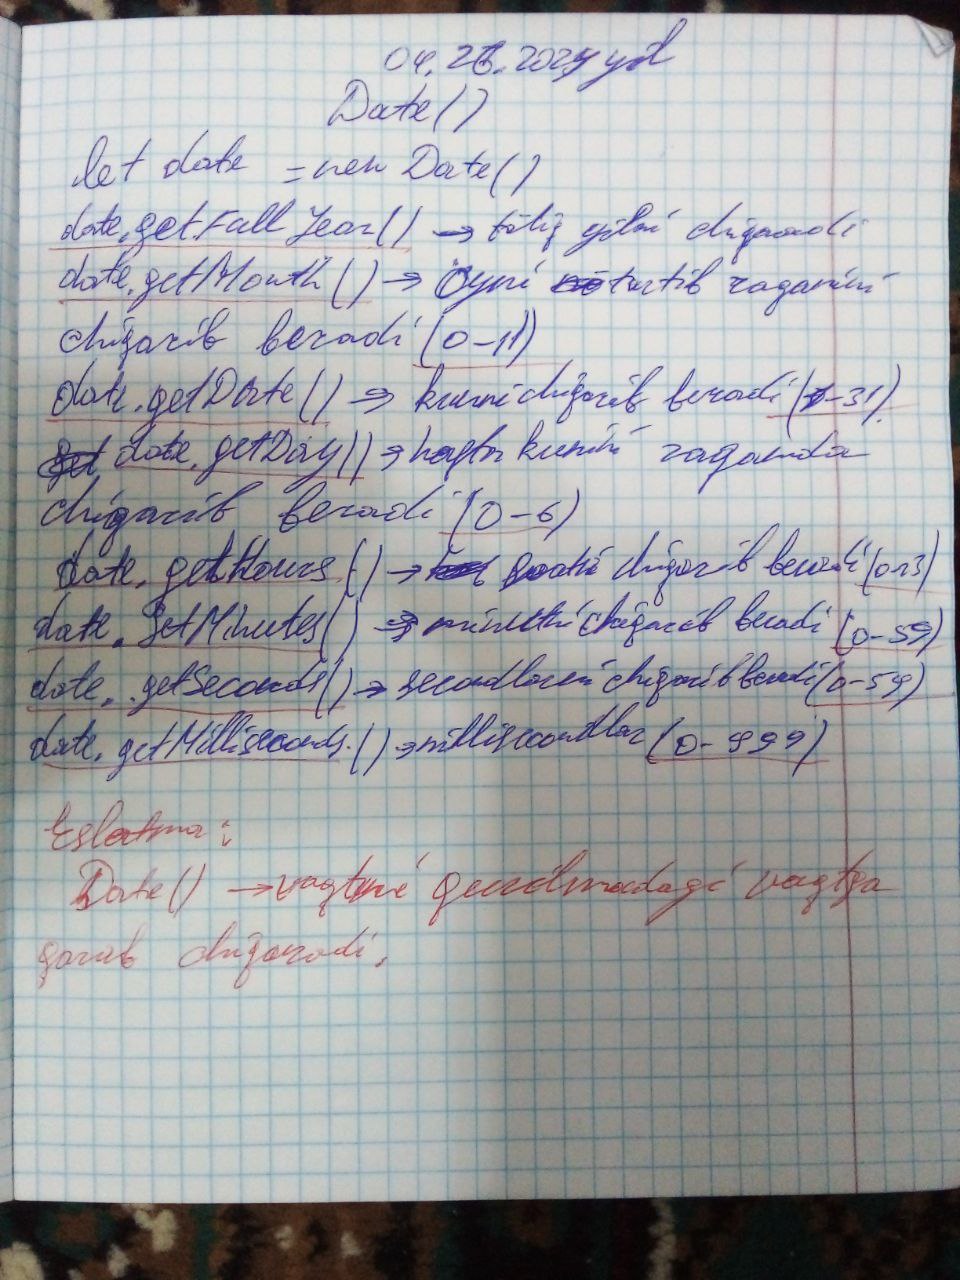 04.26.2024 yil
Date()
let date = new Date()
date.getFullYear() → tóliq yilni chiqaradi
date.getMonth() → oyni tartib raqamini
chiqarib beradi (0-11)
date.getDate() → kunni chiqarib beradi (1-31).
date.getDay() → hafta kunini raqamda
chiqarib beradi (0-6)
date.getHours() → soatni chiqarib beradi (0-23)
date.getMinutes() → minutni chiqarib beradi (0-59)
date.getSeconds() → secondlarni chiqarib beradi (0-59)
date.getMilliseconds.() → millisecondlar (0-999)
Eslatma:
Date() → vaqtni qurilmadagi vaqtga
qarab chiqaradi.